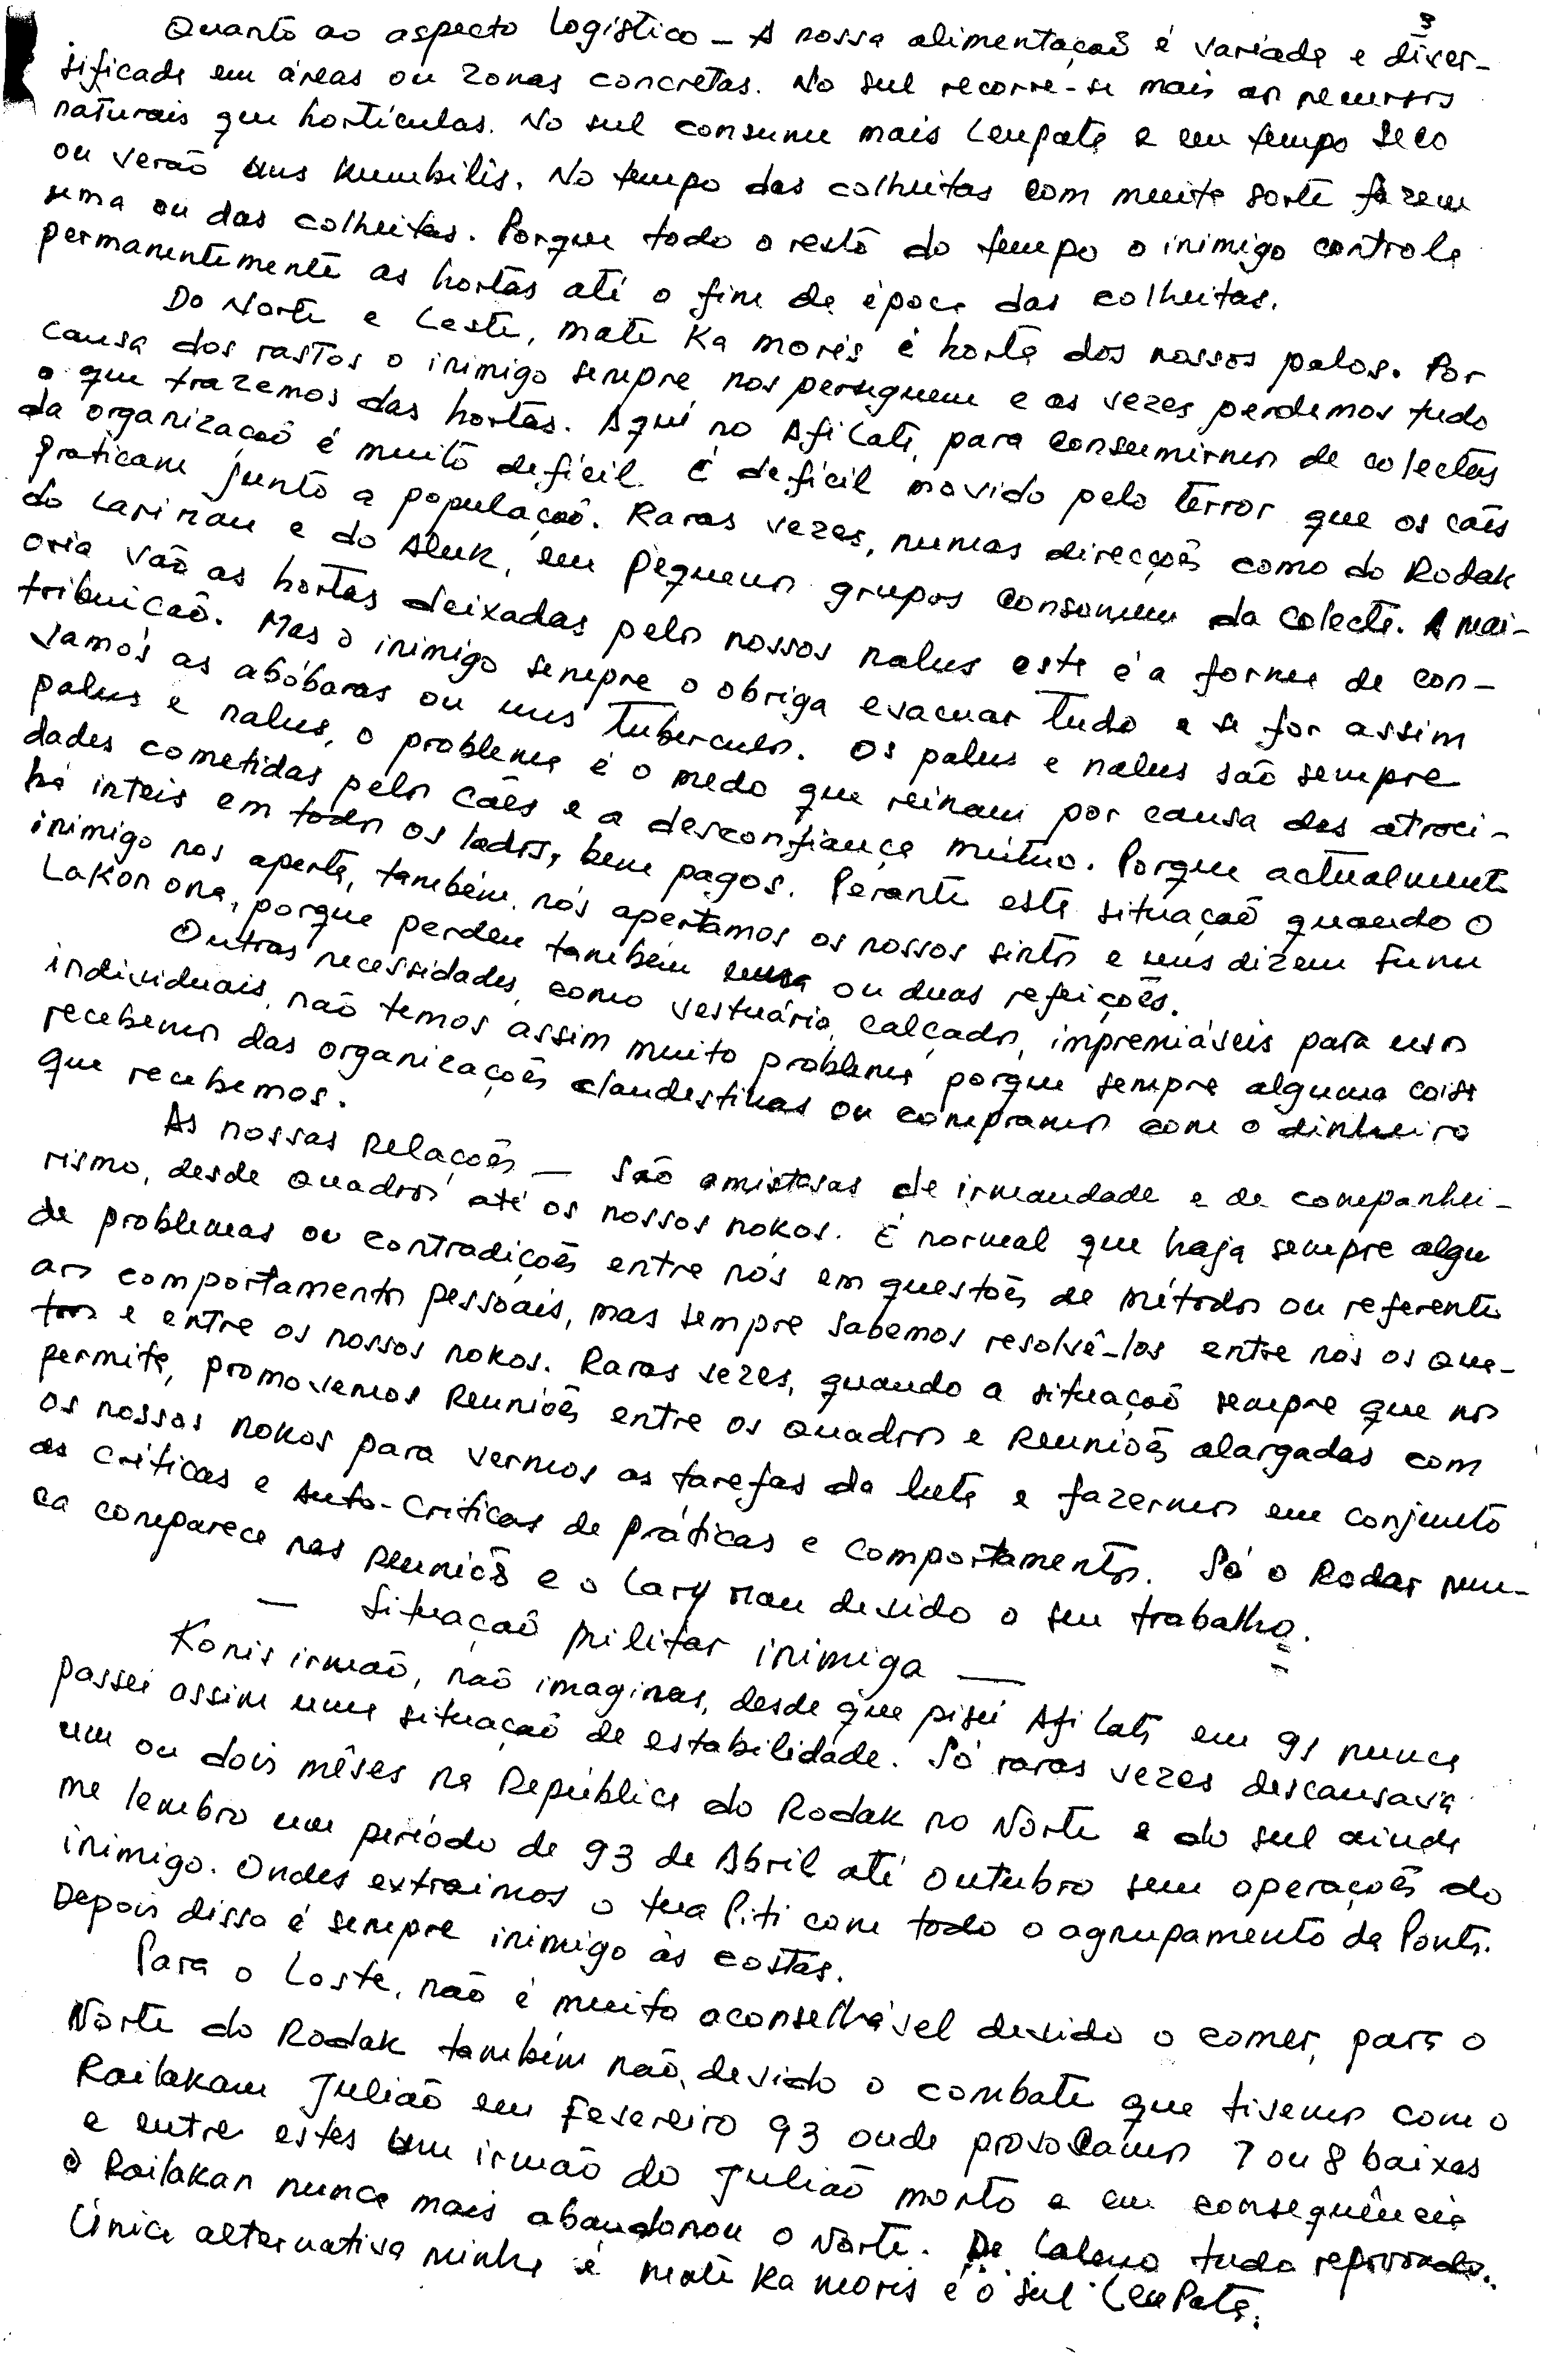 3
Quanto ao aspecto logístico - A nossa alimentação é variada e diver-
sificada em áreas ou zonas concretas. No sul recorre-se mais ao recursos
naturais que hortículas. No sul consume mais Leupata e em tempo seco
ou verão uns kumbilis. No tempo das colheitas com muita sorte fazem
uma ou das colheitas. Porque todo o resto do tempo o inimigo controla
permanentemente as hortas até o fim da época das colheitas.
Do Norte e Leste, mate ka moris é horta dos nossos palos. Por
causa dos rastos o inimigo sempre nos perseguem e as vezes perdemos tudo
o que trazemos das hortas. Aqui no Afilati, para consumirmos de colectas
da organização é muito defícil. É defícil movido pelo terror que os cães
praticam junto a população. Raras vezes, numas direcções como do Rodak
do Larimau e do Aluk, em pequenos grupos consomem da colecta. A mai-
oria vão as hortas deixadas pelos nossos nalus este é a forma de con-
tribuição. Mas o inimigo sempre o obriga evacuar tudo e se for assim
vamos as abóbaras ou uns tuberculos. Os palus e nalus são sempre
palus e nalus, o problema é o medo que reinam por causa das atroci-
dades cometidas pelos cães e a desconfiança mútuo. Porque actualmente
há inteis em todos os lados, bem pagos. Perante esta situação quando o
inimigo nos aperta, também nós apertamos os nossos sintos e uns dizem funu
Lakon ona, porque perdeu também uma ou duas refeições.
Outras necessidades, como vestuário, calçados, impremiáveis para usos
individuais, não temos assim muito problema porque sempre alguma coisa
recebemos das organizações clandestinas ou compramos com o dinheiro
que recebemos.
As nossas Relações - São amistosas de irmandade e de companhei-
rismo, desde quadros até os nossos nokos. É normal que haja sempre algu
de problemas ou contradições entre nós em questões de métodos ou referente
aos comportamentos pessoais, mas sempre sabemos resolvê-los entre nós os qua-
tros e entre os nossos nokos. Raras vezes, quando a situação sempre que nos
permite, promovemos Reuniões entre os quadros e Reuniões alargadas com
os nossos nokos para vermos as tarefas da luta e fazermos em conjunto
as críticas e auto-críticas de práticas e comportamentos. Só o Rodak nun-
ca comparece nas Reuniões e o Lary mau devido o seu trabalho.
- Situação militar inimiga -
Konis irmão, não imaginas, desde que pisei Afilati em 91 nunca
passei assim uma situação de estabilidade. Só raras vezes descansava
um ou dois mêses na República do Rodak no Norte e do sul ainda
me lembro um período de 93 de Abril até Outubro sem operações do
inimigo. Ondes extraimos o tua Piti com todo o agrupamento da Ponta.
Depois disso é sempre inimigo às costas.
Para o Loste, não é muito aconselhável devido o comer, para o
Norte do Rodak também não, devido o combate que tivemos com o
Railakan Julião em Fevereiro 93 onde provocamos 7 ou 8 baixas
e entre estes um irmão do Julião morto e em consequência
o Railakan nunca mais abandonou o Norte. De Laleno tudo reprovado.
Única alternativa minha é mate ka moris é o sul Leupata.